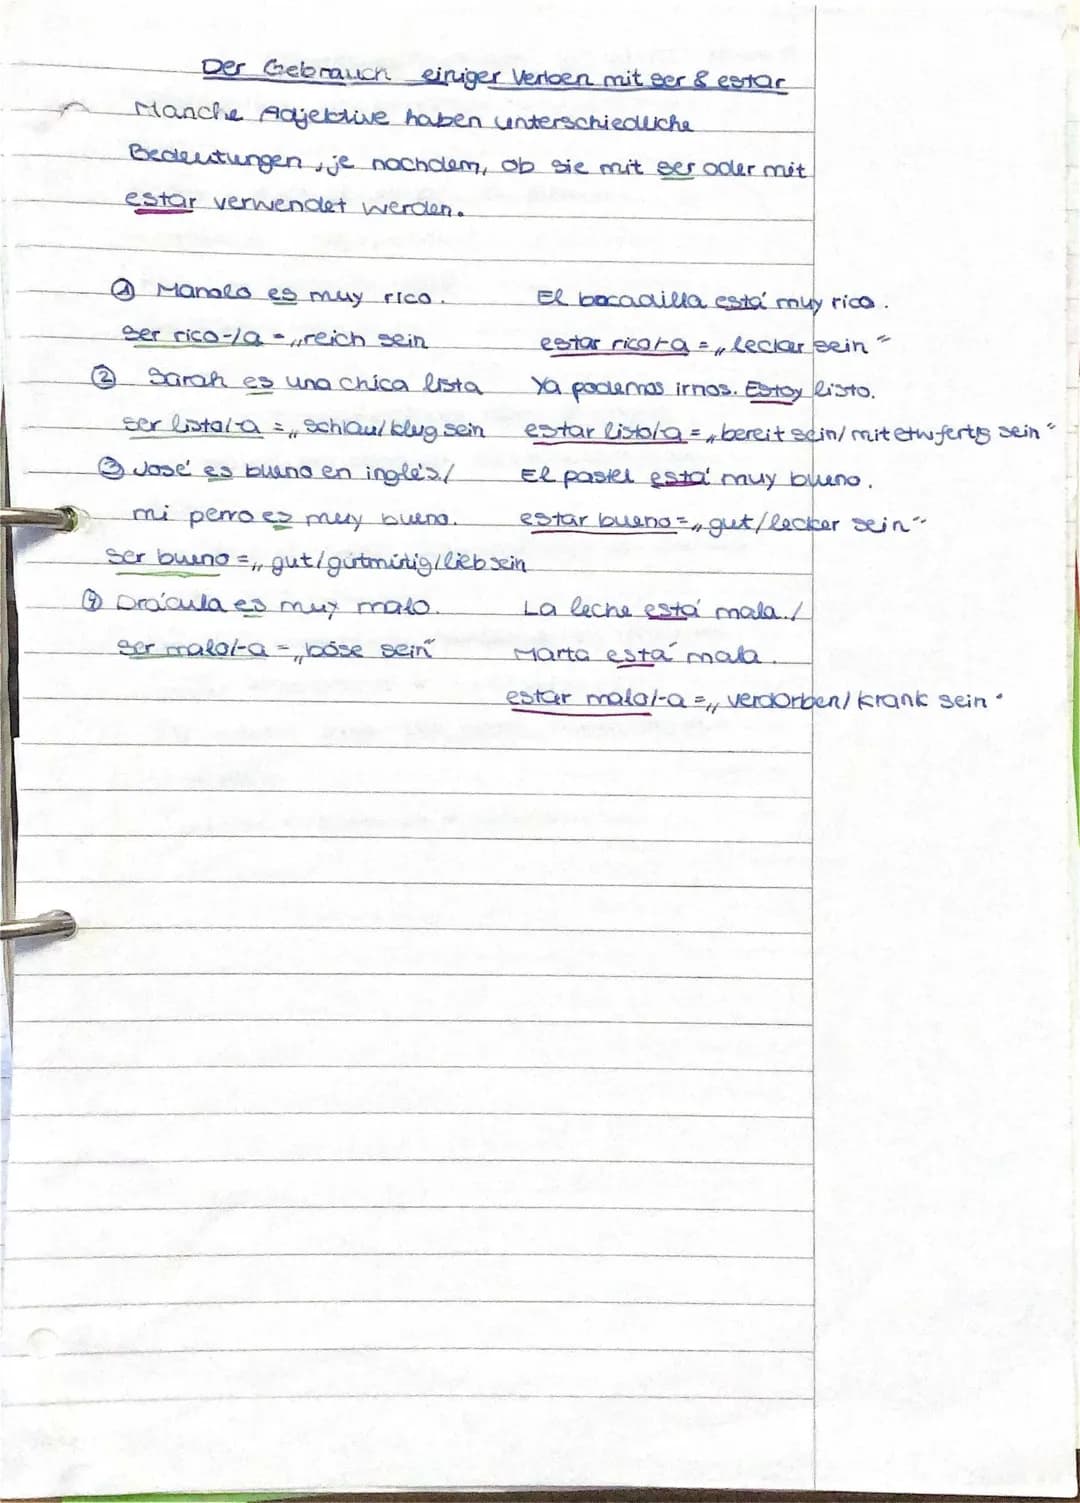 Der Gebrauch einiger Verben mit ser & estar
Manche Adjektive haben unterschiedliche
Bedeutungen, je nachdem, ob sie mit ser oder mit
estar verwendet werden.
① Manolo es muy rico. El bocadilla está muy rico.
ser rico-/a = „reich sein estar rico/-a = „lecker sein"
② Sarah es una chica lista Ya podemos irnos. Estoy listo.
ser lista/-a = „schlau/klug sein estar listo/-a = „bereit sein/mit etw fertig sein"
③ José es bueno en inglés./ El pastel está muy bueno.
mi perro es muy bueno. estar bueno = „gut/lecker sein"
ser bueno = „gut/gutmütig/lieb sein
④ Drácula es muy malo. La leche está mala./
ser malo/-a = „böse sein" Marta está mala.
estar malo/-a = „verdorben/krank sein"